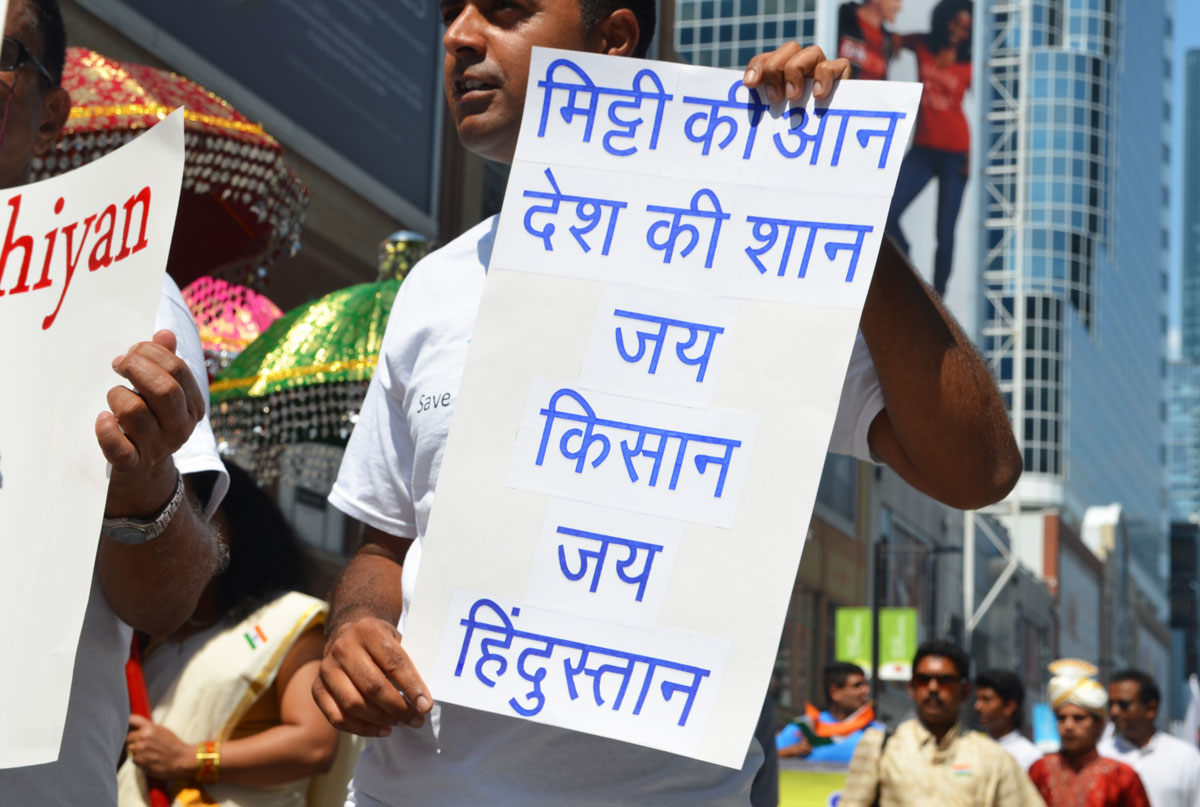 hiyan
Save
मिट्टी की आन
देश की शान
जय
किसान
जय
हिंदुस्तान